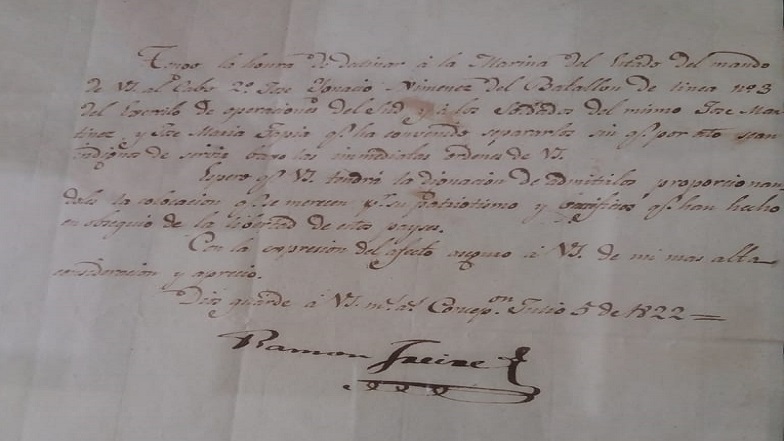 Tengo la honra de destinar á la Marina del Estado del mando
de VS. al Cabo 2º. Jose Ygnacio Ximenez del Batallon de linea nº 3
del Exercito de operaciones del Sud y á los Soldados del mismo Jose Mar-
tinez y Jose Maria Tapia qe. ha convenido separarlos sin qe. por esto sean
indignos de servir baxo las inmediatas ordenes de VS.
Espero qe. VS. tendrá la dignacion de admitirlos proporcionan-
doles la colocacion qe. se merecen pr. su patriotismo y sacrificios qe. han hecho
en obsequio de la libertad de estos payses.
Con la expresion del afecto aseguro á VS. de mi mas alta
consideracion y aprecio.
Dios guarde á VS. ms. as. Concepon. Julio 5 de 1822 =
Ramon Freire